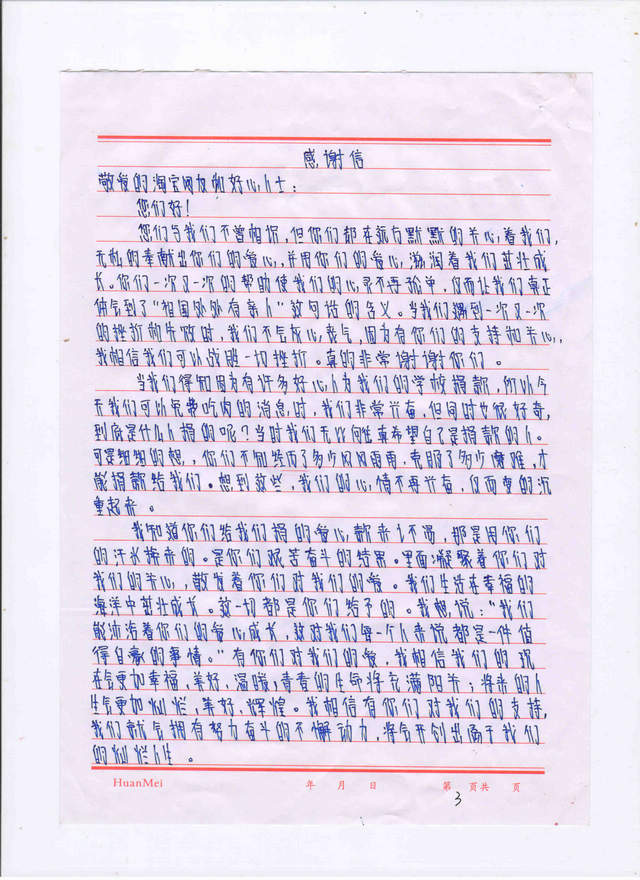 感谢信
敬爱的淘宝网友和好心人士：
您们好！
您们与我们不曾相识，但你们都在远方默默的关心着我们，
无私的奉献出你们的爱心，并用你们的爱心，滋润着我们茁壮成
长。你们一次又一次的帮助使我们的心灵不再孤单，反而让我们真正
体会到了“祖国处处有亲人”这句话的含义。当我们遇到一次又一次
的挫折和失败时，我们不会灰心丧气，因为有你们的支持和关心，
我相信我们可以战胜一切挫折。真的非常谢谢你们。
当我们得知因为有许多好心人为我们的学校捐款，所以今
天我们可以免费吃肉的消息时，我们非常兴奋，但同时也很好奇，
到底是什么人捐的呢？当时我们无比的希望自己是捐款的人。
可是细细的想，你们不知经历了多少风风雨雨，克服了多少困难，才
能捐款给我们。想到这些，我们的心情不再兴奋，反而变的沉
重起来。
我知道你们给我们捐的爱心款来之不易，那是用你们
的汗水换来的。是你们艰苦奋斗的结果。里面凝聚着你们对
我们的关心，散发着你们对我们的爱。我们生活在幸福的
海洋中茁壮成长。这一切都是你们给予的。我想说：“我们
能沐浴着你们的爱心成长，这对我们每一个人来说都是一件值
得自豪的事情。”有你们对我们的爱，我相信我们的现
在会更加幸福，美好，温暖，青春的生命将充满阳光；将来的人
生会更加灿烂，美好，辉煌。我相信有你们对我们的支持，
我们就会拥有努力奋斗的不懈动力，将会开创出属于我们
的灿烂人生。
HuanMei 年 月 日 第 页共 页
3